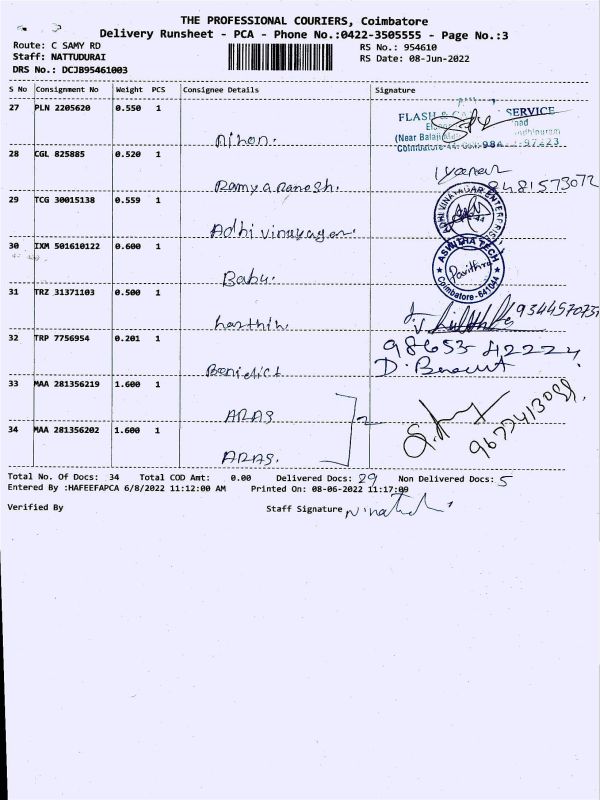 THE PROFESSIONAL COURIERS, Coimbatore
Delivery Runsheet - PCA - Phone No.:0422-3505555 - Page No.:3
Route: C SAMY RD
RS No.: 954610
Staff: NATTUDURAI
RS Date: 08-Jun-2022
DRS No.: DCJB95461003
S No Consignment No Weight PCS Consignee Details Signature
27 PLN 2205620 0.550 1
FLASH SERVICE
(Near Balaji
Coimbatore-44.
Nihon.
28 CGL 825885 0.520 1
Ramya Ranesh. 8481573072
29 TCG 30015138 0.559 1
ADHI VINAYAGAR ENTERPRISES
Adhi vinayagar.
30 IXM 501610122 0.600 1
ASWITHA TECH
Pavithra
Coimbatore-641044
Babu.
31 TRZ 31371103 0.500 1
harthik.
32 TRP 7756954 0.201 1
98653-42224
Benidict
33 MAA 281356219 1.600 1
ARAS
34 MAA 281356202 1.600 1
ARAS.
Total No. Of Docs: 34 Total COD Amt: 0.00 Delivered Docs: 29 Non Delivered Docs: 5
Entered By :HAFEEFAPCA 6/8/2022 11:12:00 AM Printed On: 08-06-2022 11:17:09
Verified By Staff Signature